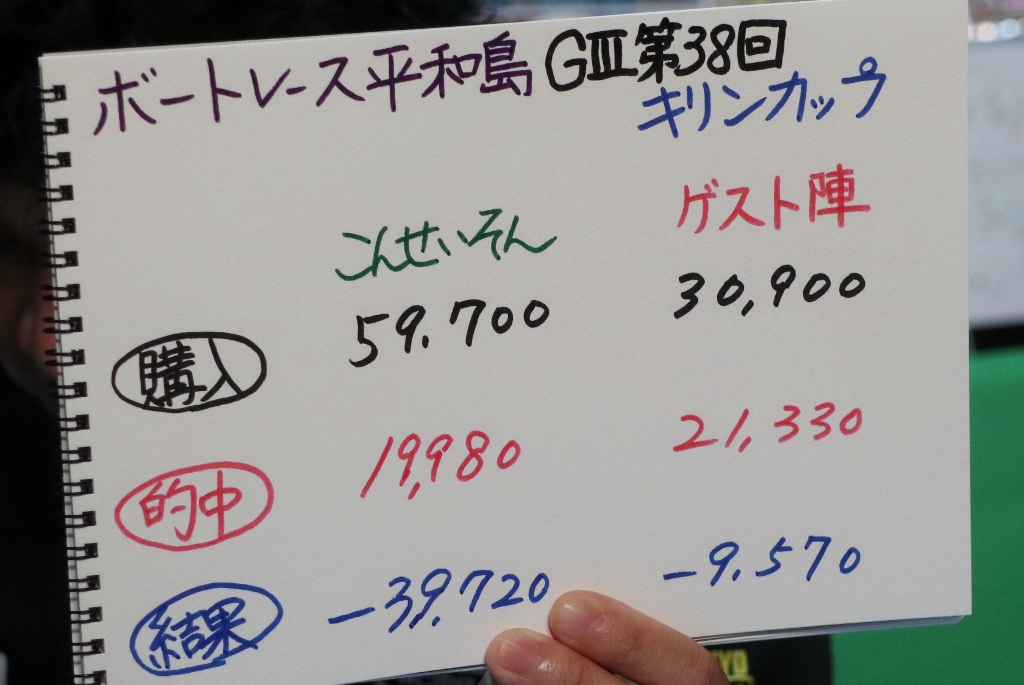 ボートレース平和島 GⅢ第38回
キリンカップ
こんせいそん ゲスト陣
購入 59.700 30,900
的中 19,980 21,330
結果 -39,720 -9.570